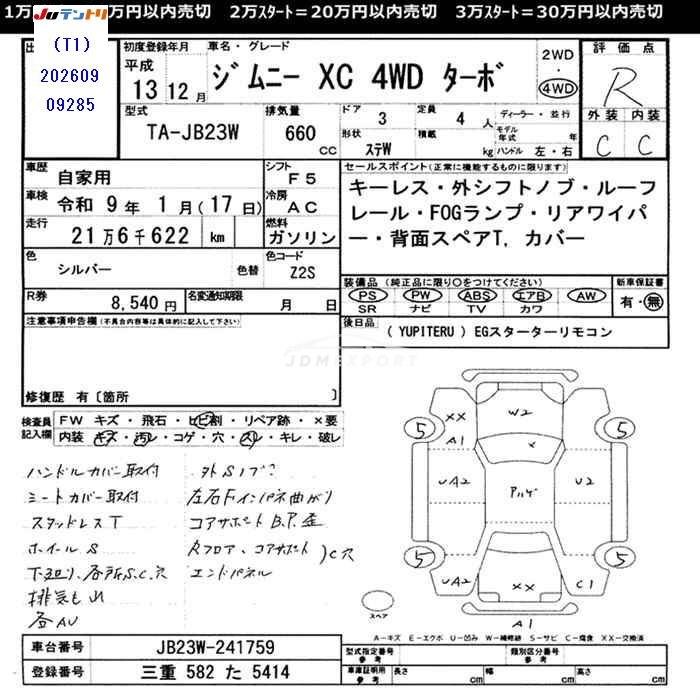 1万 万円以内売切 2万スタート=20万円以内売切 3万スタート=30万円以内売切
Juテントリ
(T1)
202609
09285
初度登録年月
平成
13 12 月
車名・グレード
ジムニー XC 4WD ターボ
2WD
・
4WD
評価点
R
外装 内装
C C
型式
TA-JB23W
排気量
660
CC
ドア
3
形状
ステW
定員
4 人
積載
kg
ディーラー・並行
モデル年式 年
ハンドル 左・右
車歴
自家用
シフト
F5
車検
令和 9 年 1 月 (17 日)
冷房
AC
走行
21 万 6 千 622 km
燃料
ガソリン
色
シルバー
色替
色コード
Z2S
R券
8,540 円
名変通知期限
月 日
セールスポイント(正常に機能するものに限ります)
キーレス・外シフトノブ・ルーフ
レール・FOGランプ・リアワイパ
ー・背面スペアT,カバー
装備品(純正品に限り○をつけてください)
PS PW ABS エアB AW
SR ナビ TV カワ
新車保証書
有・無
後日品
(YUPITERU)EGスターターリモコン
注意事項申告欄(不具合内容等は具体的に記入して下さい)
JDMEXPORT
修復歴 有〔箇所 〕
検査員
記入欄
FW キズ・飛石・ヒビ割・リペア跡・×要
内装 キズ・汚レ・コゲ・穴・スレ・キレ・破レ
ハンドルカバー取付
シートカバー取付
スタッドレスT
ホイールS
下廻り、各所S.C.穴
排気もれ
各AU
外Sノブ?
左右Fインパネ曲がり
コアサポートB.P.歪
Rフロア、コアサポート
エンドパネル
)C穴
XX
W2
A1
5
5
UA2
アルゲ
U2
5
5
UA2
XX
C1
A1
スペア
A-キズ E-エクボ U-凹み W-補修跡 S-サビ C-腐食 XX-交換済
車台番号
JB23W-241759
登録番号
三重 582 た 5414
型式指定番号
参考
類別区分番号
参考
車庫証明用
参考
長さ cm
幅 cm
高さ cm